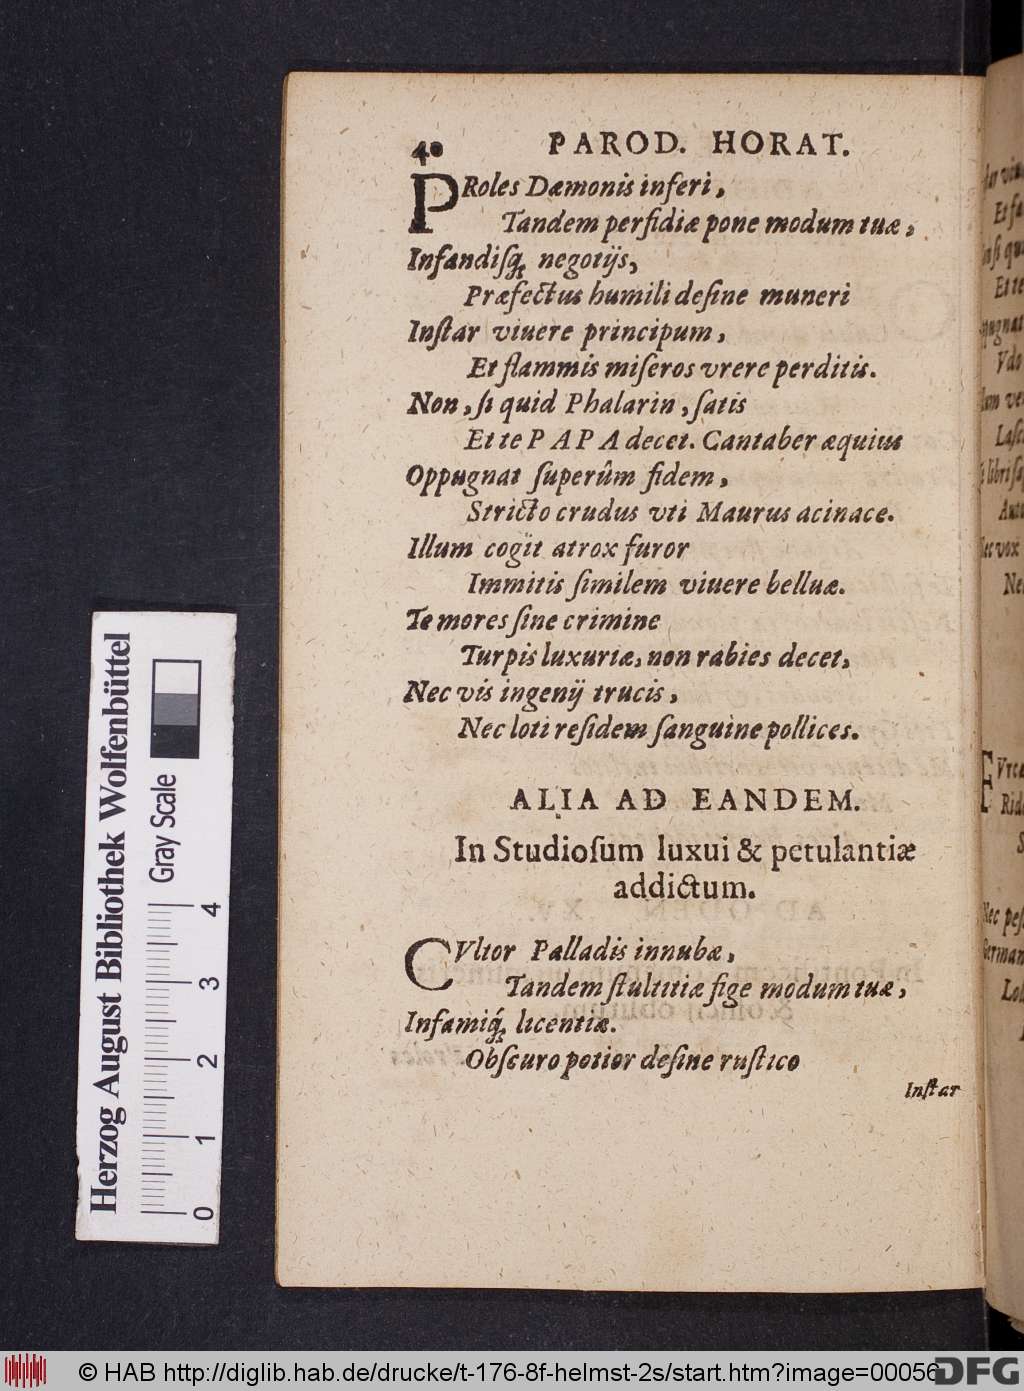 40 PAROD. HORAT.
PRoles Dæmonis inferi,
Tandem perfidiæ pone modum tuæ,
Infandiſq́; negotijs,
Præfectus humili deſine muneri
Inſtar viuere principum,
Et flammis miſeros vrere perditis.
Non, ſi quid Phalarin, ſatis
Et te PAPA decet. Cantaber æquius
Oppugnat ſuperûm fidem,
Stricto crudus vti Maurus acinace.
Illum cogit atrox furor
Immitis ſimilem viuere belluæ.
Te mores ſine crimine
Turpis luxuriæ, non rabies decet,
Nec vis ingenij trucis,
Nec loti reſidem ſanguine pollices.
ALIA AD EANDEM.
In Studioſum luxui & petulantiæ
addictum.
CVltor Palladis innubæ,
Tandem ſtultitiæ fige modum tuæ,
Infamiq́; licentiæ.
Obſcuro potior deſine ruſtico
Inſtar
Herzog August Bibliothek Wolfenbüttel
Gray Scale
0 1 2 3 4
© HAB http://diglib.hab.de/drucke/t-176-8f-helmst-2s/start.htm?image=00056
DFG